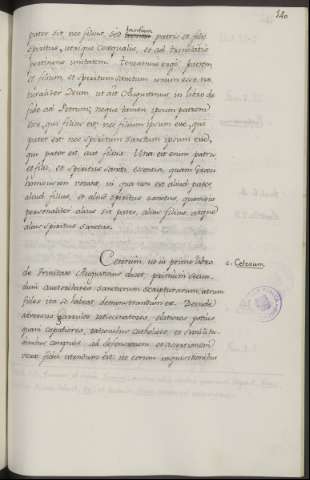 120
pater sit, nec filius, sed tantum patris et filii
spiritus, utrique coequalis, et ad trinitatis
pertinens unitatem. Teneamus ergo patrem
et filium, et spiritum sanctum unum esse na
turaliter Deum, ut ait Augustinus in libro de
fide ad Petrum; neque tamen ipsum patrem
esse, qui filius est; nec filium ipsum esse, qui
pater est: nec spiritum sanctum ipsum esse,
qui pater est, aut filius. Una est enim patris,
et filii, et spiritus sancti essentia, quam Greci
homousion vocant, in qua non est aliud pater,
aliud filius, et aliud spiritus sanctus, quamvis
personaliter alius sit pater, alius filius, atque
alius spiritus sanctus.
Ceterum, ut in primo libro
c. Ceterum
de Trinitate Augustinus docet, primum secun
dum auctoritatem sanctarum scripturarum, utrum
fides ita se habeat, demonstrandum est. Deinde
adversus garrulos ratiocinatores, elatiores potius
quam capatiores, rationibus catholicis, et similitu
dinibus congruis, ad defensionem, et assertionem
fidei utendum est, ut eorum inquisitionibus